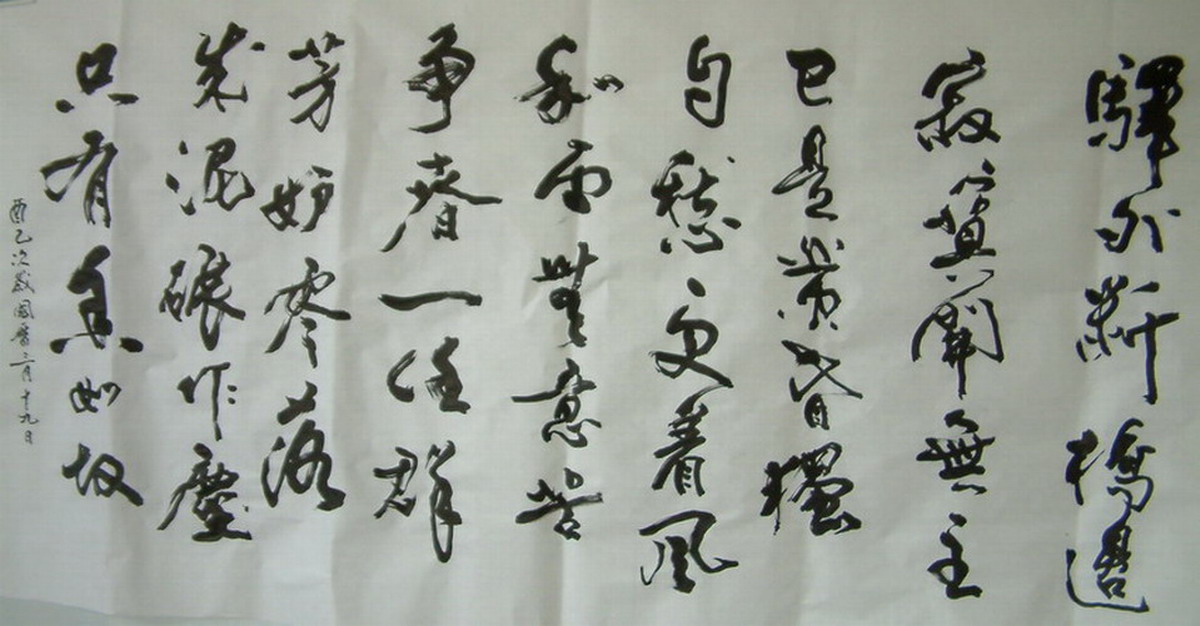 驛外斷橋邊
寂寞開無主
已是黃昏獨
自愁更着風
和雨無意苦
争春一任群
芳妒零落
成泥碾作塵
只有香如故
酉乙次歲國曆月十九日